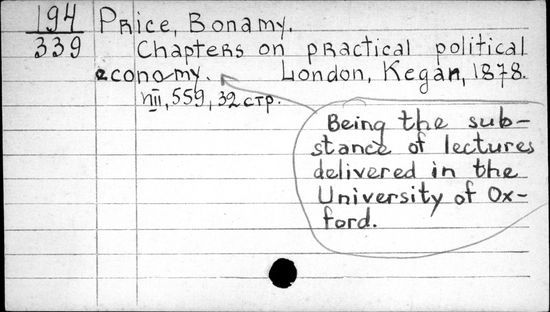 194
339
Price, Bonamy.
Chapters on practical political
economy. London, Kegan, 1878.
VIII, 559, 32 стр.
Being the sub-
stance of lectures
delivered in the
University of Ox-
ford.